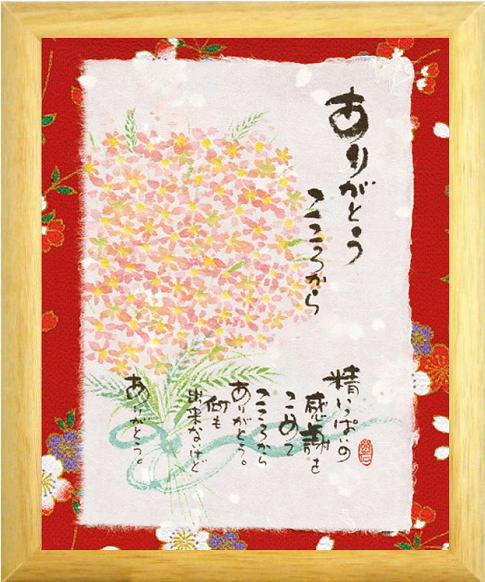 ありがとう
こころから
精いっぱいの
感謝を
こめて
こころから
ありがとう。
何も
出来ないけど
ありがとう。